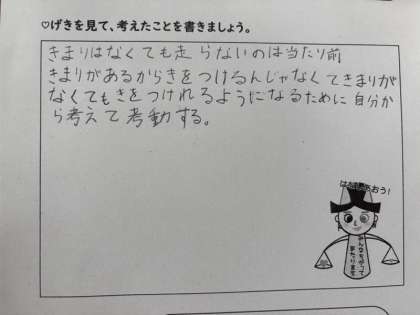 ♡げきを見て、考えたことを書きましょう。
きまりはなくても走らないのは当たり前
きまりがあるからきをつけるんじゃなくてきまりが
なくてもきをつけれるようになるために自分か
ら考えて考動する。